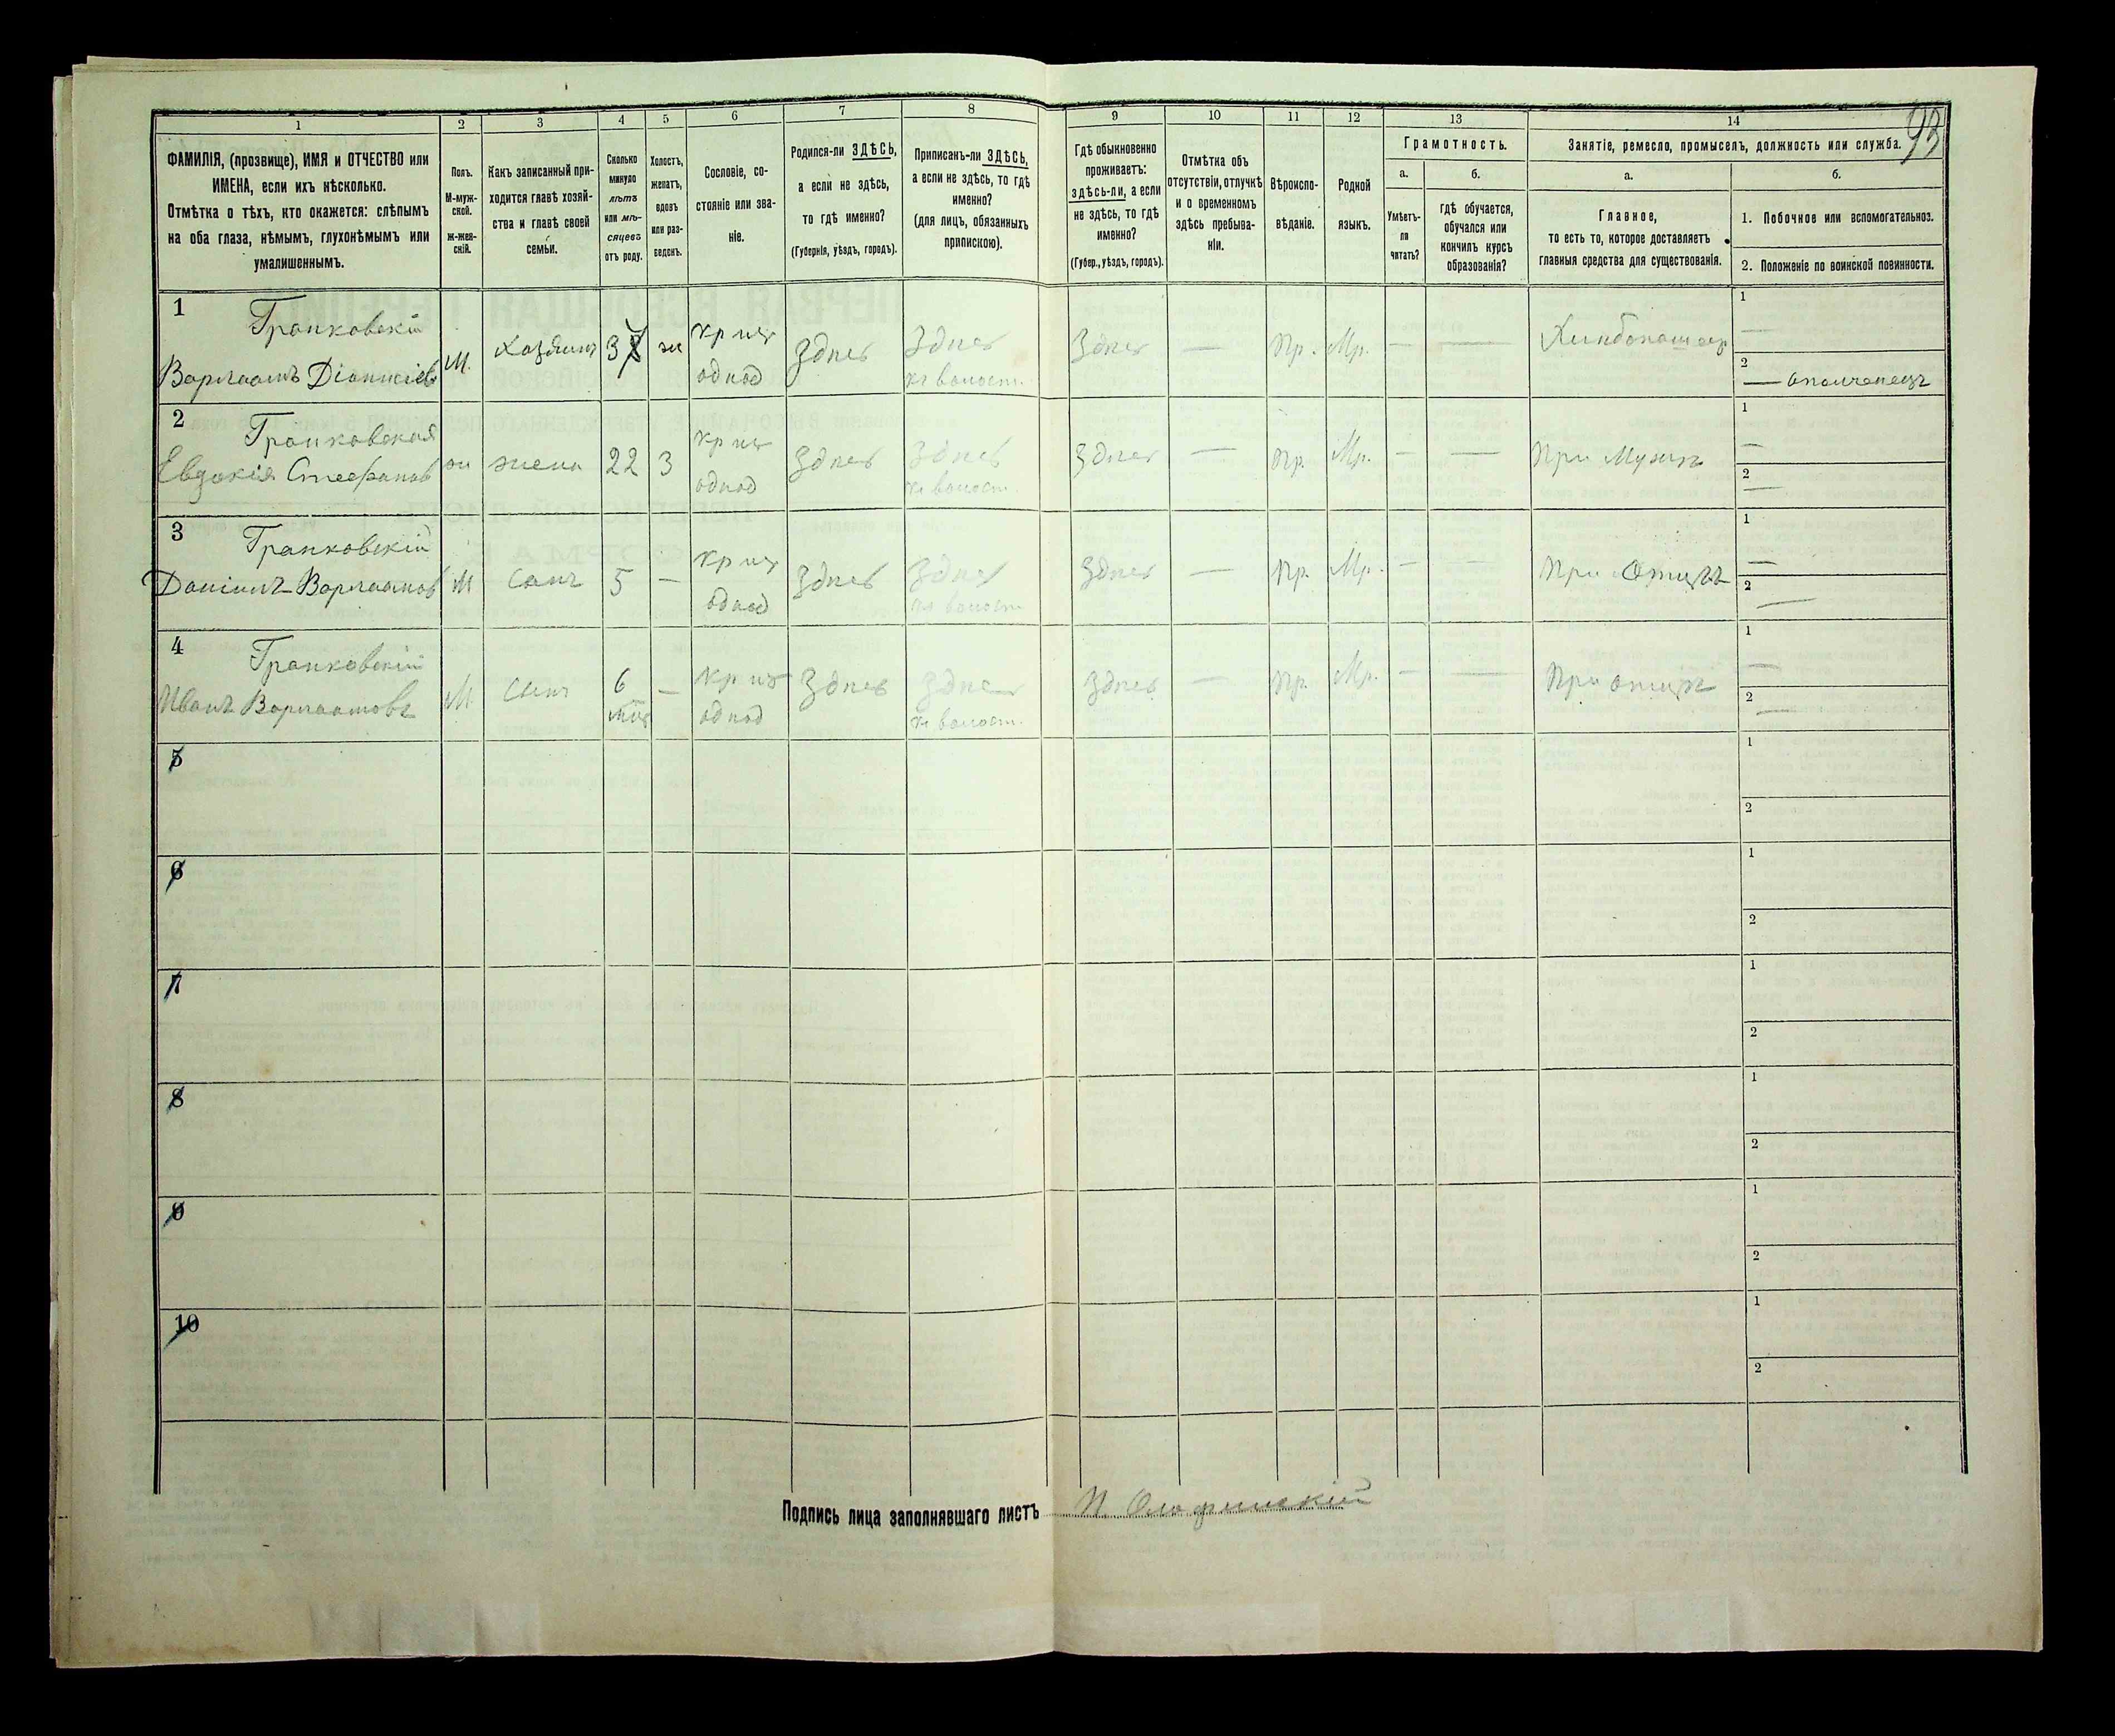 93
1 2 3 4 5 6 7 8 9 10 11 12 13 14
ФАМИЛІЯ, (прозвище), ИМЯ и ОТЧЕСТВО или
ИМЕНА, если ихъ нѣсколько.
Отмѣтка о тѣхъ, кто окажется: слѣпымъ
на оба глаза, нѣмымъ, глухонѣмымъ или
умалишеннымъ.
Полъ.
М-муж-
ской.
ж-жен-
скій.
Какъ записанный при-
ходится главѣ хозяй-
ства и главѣ своей
семьи.
Сколько
минуло
лѣтъ
или мѣ-
сяцевъ
отъ роду.
Холостъ,
женатъ,
вдовъ
или раз-
веденъ.
Сословіе, со-
стояніе или зва-
ніе.
Родился-ли ЗДѢСЬ,
а если не здѣсь,
то гдѣ именно?
(Губернія, уѣздъ, городъ).
Приписанъ-ли ЗДѢСЬ,
а если не здѣсь, то гдѣ
именно?
(для лицъ, обязанныхъ
припискою).
Гдѣ обыкновенно
проживаетъ:
ЗДѢСЬ-ЛИ, а если
не здѣсь, то гдѣ
именно?
(Губер., уѣздъ, городъ).
Отмѣтка объ
отсутствіи, отлучкѣ
и о временномъ
здѣсь пребыва-
ніи.
Вѣроиспо-
вѣданіе.
Родной
языкъ.
Грамотность.
а.
Умѣетъ-
ли
читать?
б.
гдѣ обучается,
обучался или
кончилъ курсъ
образованія?
Занятіе, ремесло, промыселъ, должность или служба.
а.
Главное,
то есть то, которое доставляетъ
главныя средства для существованія.
б.
1. Побочное или вспомогательноз.
2. Положеніе по воинской повинности.
1 Гранковскій
Варлаамъ Діонисіевъ М. Хозяинъ 3 ж хр изъ однод Здѣсь Здѣсь къ волост. Здѣсь — Пр. Мр. — — Хлѣбопашецъ 1 — 2 — ополченецъ
2 Гранковская
Евдокія Стефанов ж жена 22 З хр изъ однод Здѣсь Здѣсь къ волост. Здѣсь — Пр. Мр. — — При Мужѣ 1 — 2 —
3 Гранковскій
Даніилъ Варлаамов М Сынъ 5 — хр изъ однод Здѣсь Здѣсь къ волост Здѣсь — Пр. Мр. — — При Отцѣ 1 — 2 —
4 Гранковскій
Иванъ Варлаамовъ М Сынъ 6 мѣс — хр изъ однод Здѣсь Здѣсь къ волост. Здѣсь — Пр. Мр. — — При отцѣ 1 — 2 —
5 1 2
6 1 2
7 1 2
8 1 2
9 1 2
10 1 2
Подпись лица заполнявшаго листъ